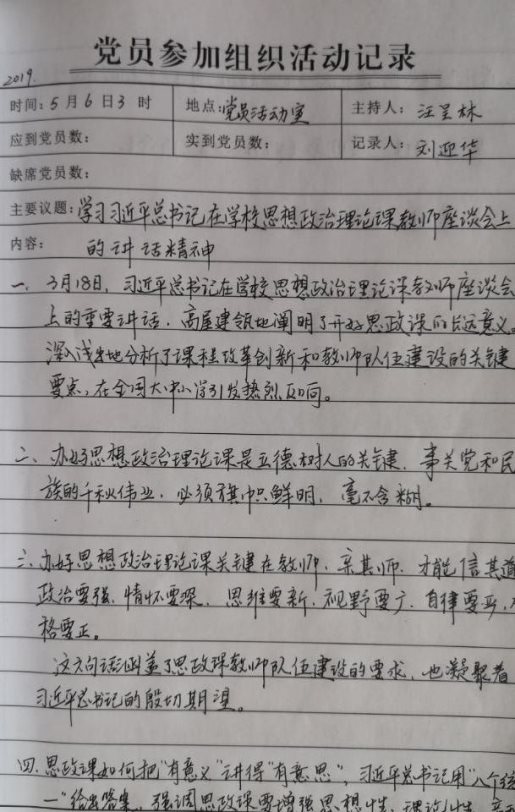 党员参加组织活动记录
2019.
时间:5月6日3时 地点:党员活动室 主持人:汪呈林
应到党员数: 实到党员数: 记录人:刘迎华
缺席党员数:
主要议题:学习习近平总书记在学校思想政治理论课教师座谈会上
内容: 的讲话精神
一、3月18日,习近平总书记在学校思想政治理论课教师座谈会
上的重要讲话,高屋建瓴地阐明了开好思政课的长远意义。
深入浅出地分析了课程改革创新和教师队伍建设的关键
要点,在全国大中小学引发热烈反响。
二、办好思想政治理论课是立德树人的关键,事关党和民
族的千秋伟业,必须旗帜鲜明,毫不含糊。
三、办好思想政治理论课关键在教师,亲其师,才能信其道
政治要强,情怀要深,思维要新,视野要广,自律要严,
格要正。
这六句话涵盖了思政课教师队伍建设的要求,也凝聚着
习近平总书记的殷切期望。
四、思政课如何把"有意义"讲得"有意思",习近平总书记用"八个统
一"给出答案,强调思政课要增强思想性、理论性、亲